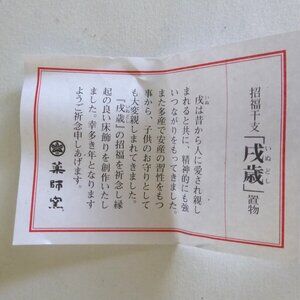 招福干支「戌歳」置物
いぬどし
戌は昔から人に愛され親し
いぬ
まれると共に、精神的にも強
いつながりをもってきました。
また多産で安産の習性をもつ
事から、子供のお守りとして
も大変親しまれてきました。
『戌歳』の招福を祈念し縁
いぬどし
起の良い床飾りを創作いたし
ました。幸多き年となります
ようご祈念申しあげます。
薬師窯